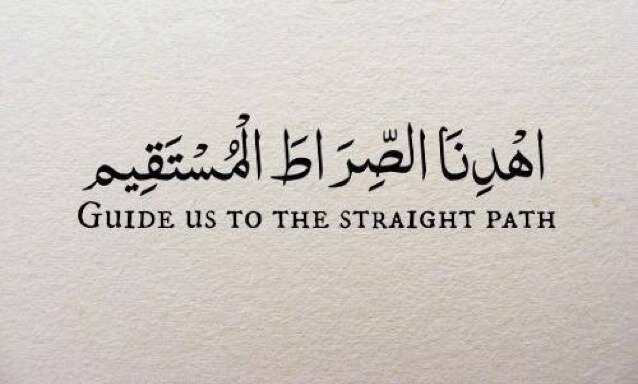 اهْدِنَا الصِّرَاطَ الْمُسْتَقِيم
GUIDE US TO THE STRAIGHT PATH